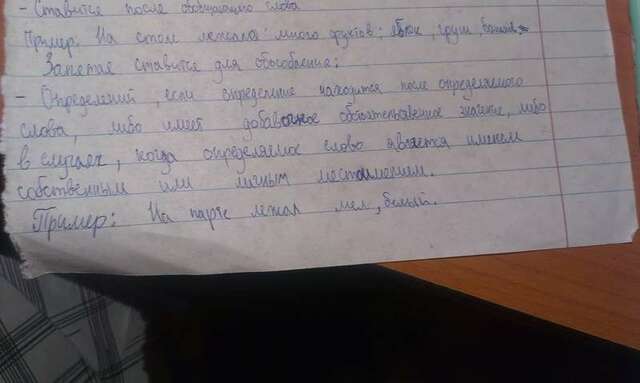 - Ставится после обобщающего слова
Пример: На столе лежало много фруктов: яблок, груш, бананов.
Запятая ставится для обособления:
- Определений, если определение находится после определяемого
слова, либо имеет добавочное обстоятельственное значение, либо
в случаях, когда определяемое слово является именем
собственным или личным местоимением.
Пример: На парте лежал мел, белый.